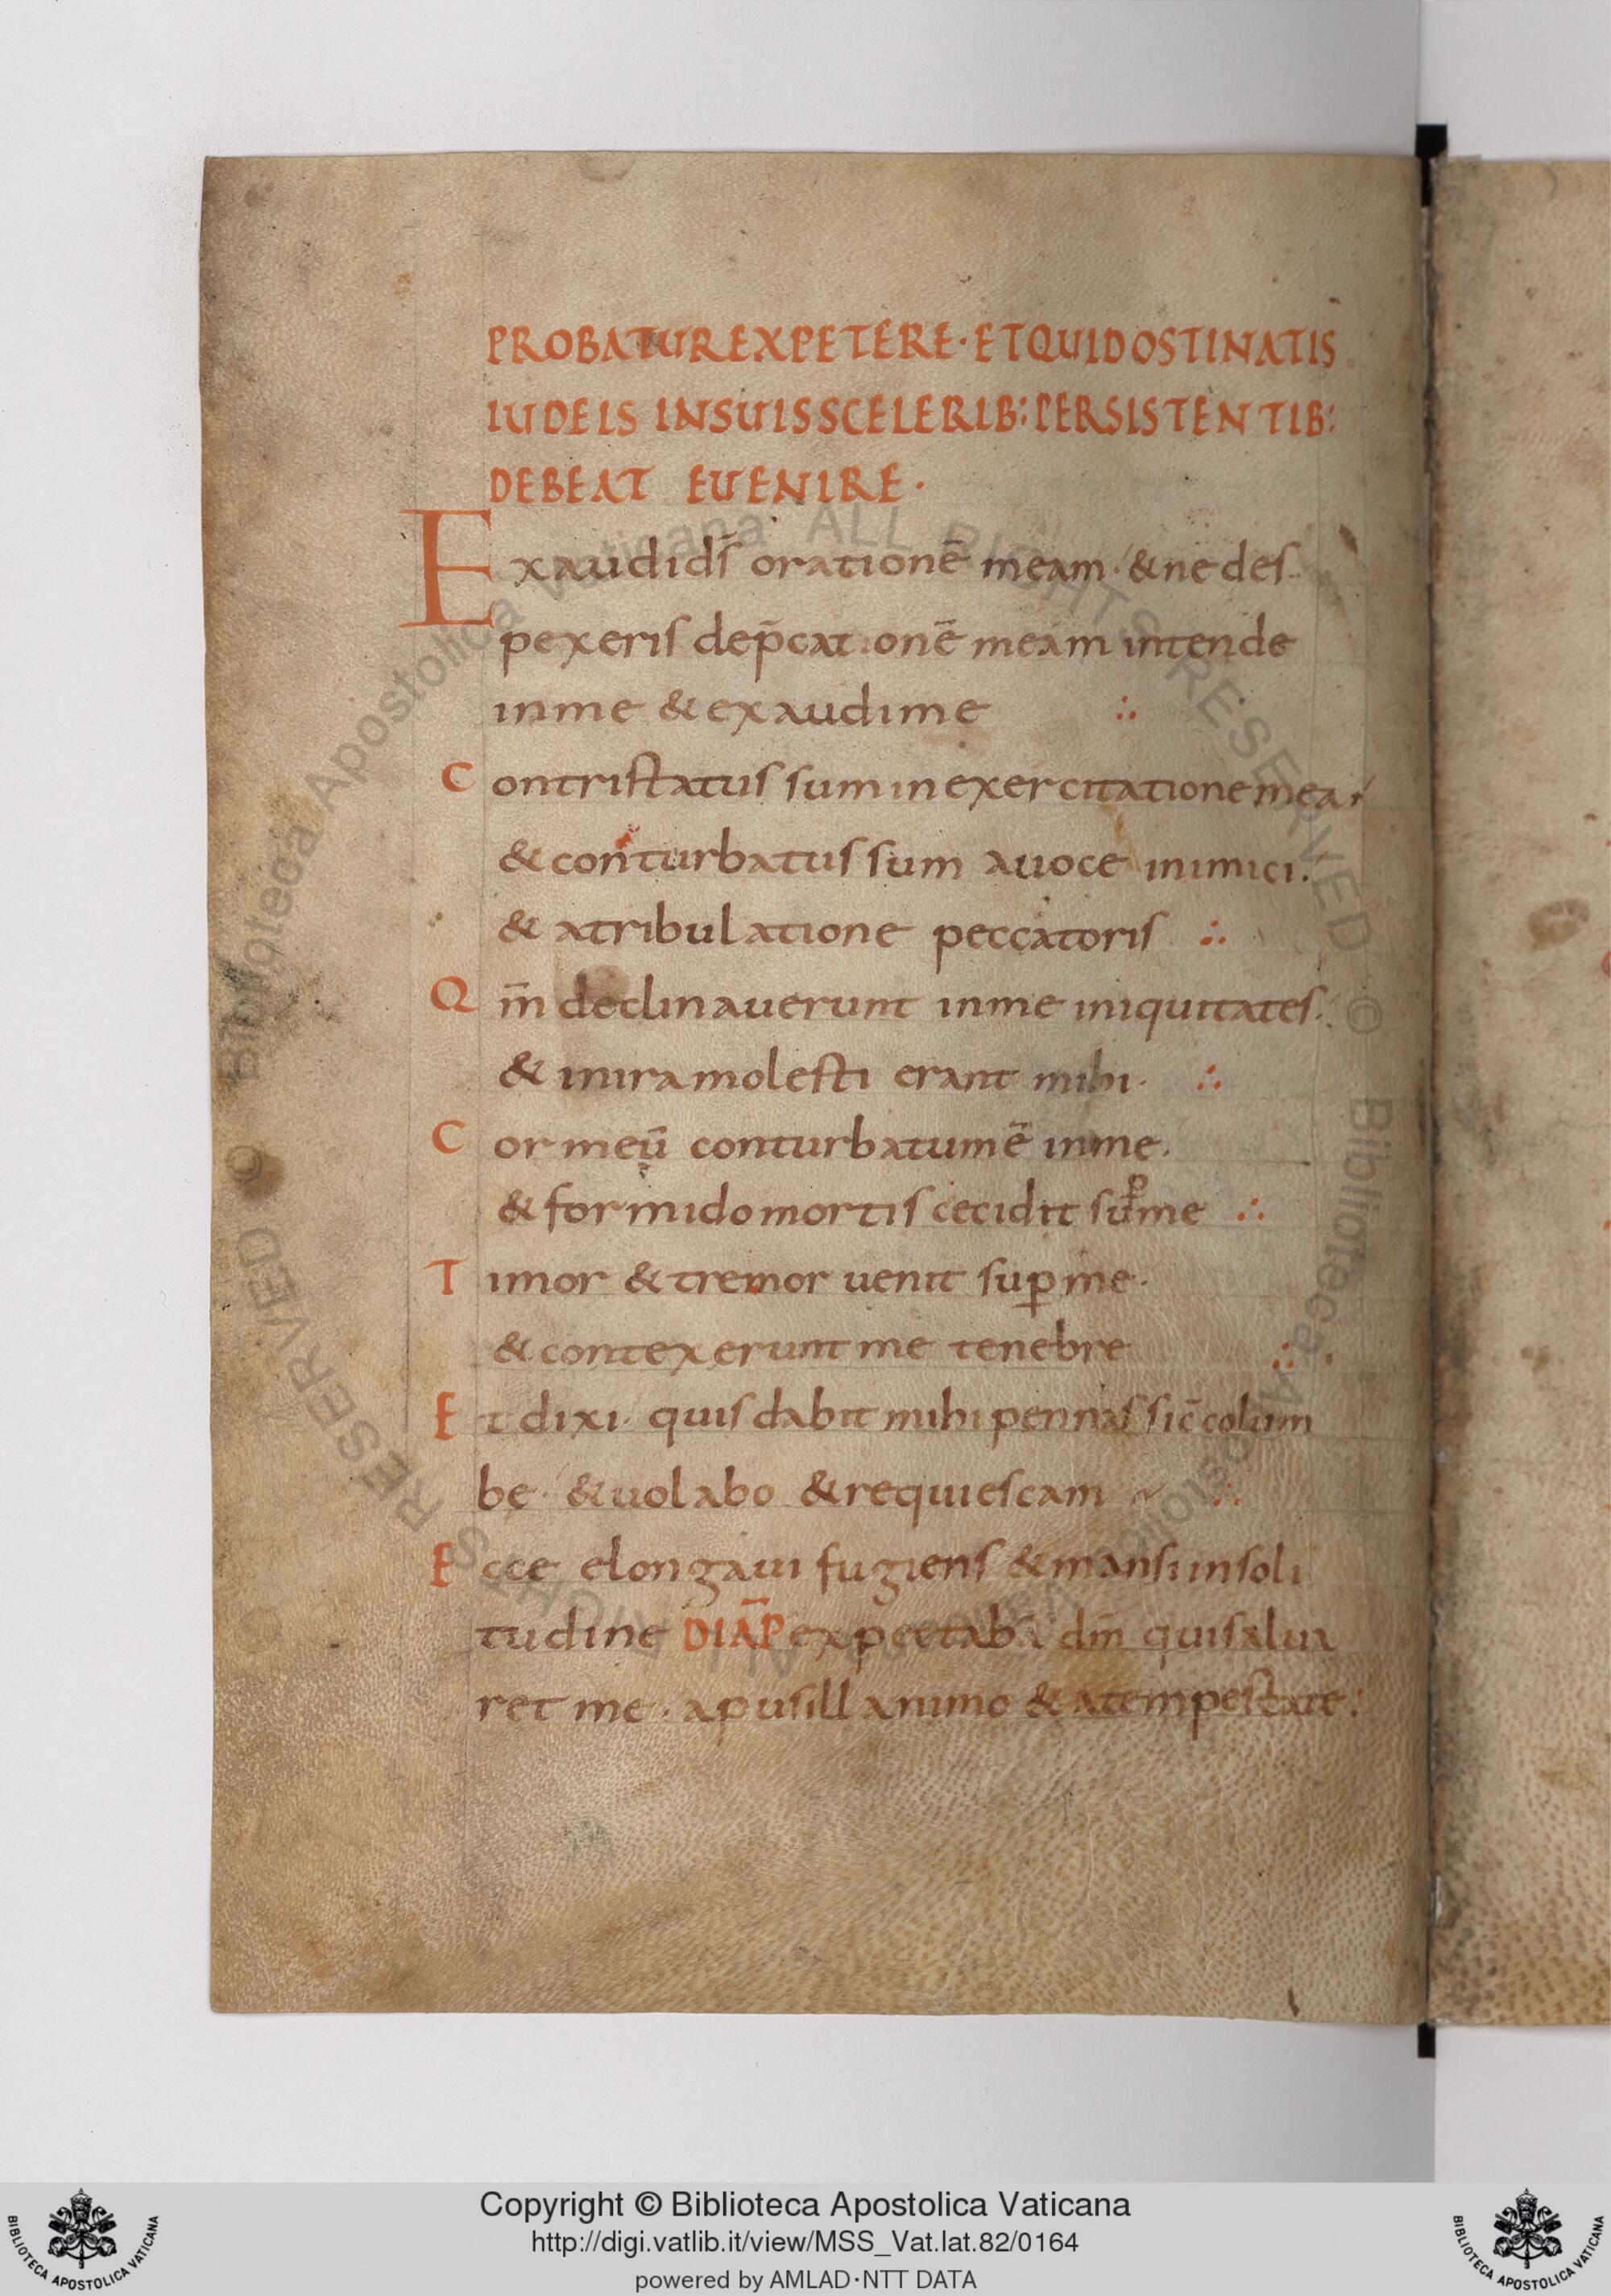 PROBATUR EXPETERE · ET QUID OSTINATIS
IUDEIS IN SUIS SCELERIB: PERSISTENTIB:
DEBEAT EUENIRE ·
Exaudi ds̄ orationē meam · & ne des
pexeris dep̄cationē meam intende
in me & exaudi me ∴
Contristatus sum in exercitatione mea ·
& conturbatus sum a uoce inimici ·
& a tribulatione peccatoris ∴
Qm̄ declinauerunt in me iniquitates ·
& in ira molesti erant mihi · ∴
Cor meū conturbatum ē in me ·
& formido mortis cecidit sup̄ me ∴
Timor & tremor uenit sup̱ me ·
& contexerunt me tenebre ∴
Et dixi · quis dabit mihi pennas sic̄ colum
be · & uolabo & requiescam ∴
Ecce elongaui fugiens & mansi in soli
tudine DIAP̄ expectabā dm̄ qui salua
ret me · a pusillanimo & a tempestate :
Copyright © Biblioteca Apostolica Vaticana
http://digi.vatlib.it/view/MSS_Vat.lat.82/0164
powered by AMLAD·NTT DATA
BIBLIOTECA APOSTOLICA VATICANA
BIBLIOTECA APOSTOLICA VATICANA